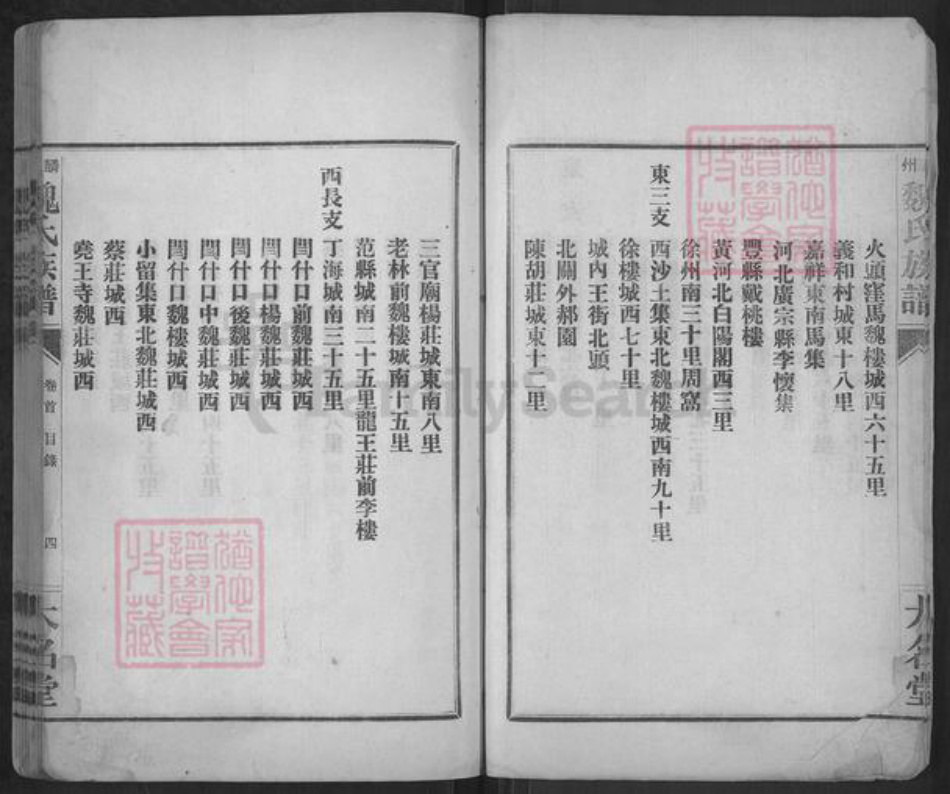 州
魏氏族譜
大名堂
火頭窪馬魏樓城西六十五里
義和村城東十八里
嘉祥東南馬集
河北廣宗縣李懷集
豐縣戴桃樓
黃河北白陽閣西三里
徐州南三十里周窩
東三支
西沙土集東北魏樓城西南九十里
徐樓城西七十里
城內王街北頭
北關外郝園
陳胡莊城東十二里
三官廟楊莊城東南八里
老林前魏樓城南十五里
范縣城南二十五里龍王莊前李樓
西長支
丁海城南三十五里
閆什口前魏莊城西
閆什口楊魏莊城西
閆什口後魏莊城西
閆什口中魏莊城西
閆什口魏樓城西
小留集東北魏莊城西
蔡莊城西
堯王寺魏莊城西
麟
魏氏族譜
卷首
目錄
四
大名堂
猶他家
譜學會
收藏
猶他家
譜學會
收藏
FamilySearch